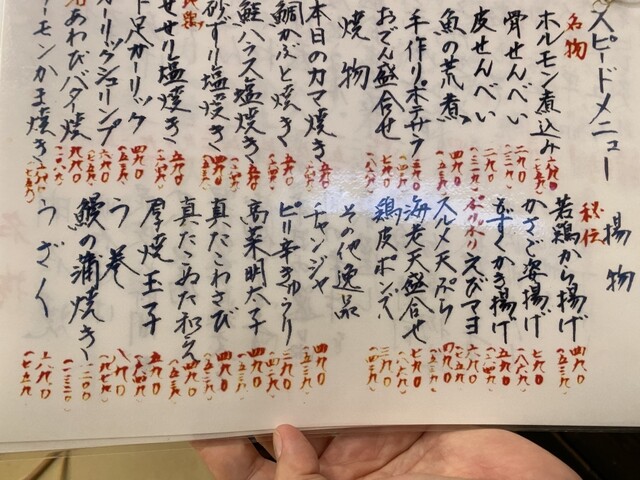 スピードメニュー
名物
ホルモン煮込み 六九〇
骨せんべい 二九〇 (三一九)
皮せんべい 二九〇 (三一九)
魚の荒煮 四九〇 (五三九)
手作りポテサラ 四九〇 (五三九)
おでん盛合せ 七九〇 (八六九)
焼物
本日のカマ焼き 五九〇
鯛かぶと焼き 五九〇
鮭ハラス塩焼き 五九〇
砂ずり塩焼き 四九〇 (五三九)
せせり塩焼き 五九〇
足ガーリック 四九〇 (五三九)
ガーリックシュリンプ 六九〇 (七五九)
あわびバター焼 九九〇 (一〇八九)
ーモンかま焼き 六九〇 (七五九)
揚物
秘伝
若鶏から揚げ 四九〇 (五三九)
かさご姿揚げ 七九〇 (八六九)
もずくかき揚げ 五九〇 (六四九)
ぷりぷりえびマヨ 六九〇 (七五九)
スルメ天ぷら 四九〇 (五三九)
海老天盛合せ 七九〇 (八六九)
鶏皮ポンズ 三九〇 (四二九)
その他逸品
チャンジャ 四九〇 (五三九)
ピリ辛きゅうり
高菜明太子 四九〇 (五三九)
真たこわさび 四九〇 (五三九)
真たこぬた和え 四九〇 (五三九)
厚焼玉子 五九〇 (六四九)
う巻 八九〇 (九七九)
鰻の蒲焼き 一二〇〇 (一三二〇)
うざく 六九〇 (七五九)